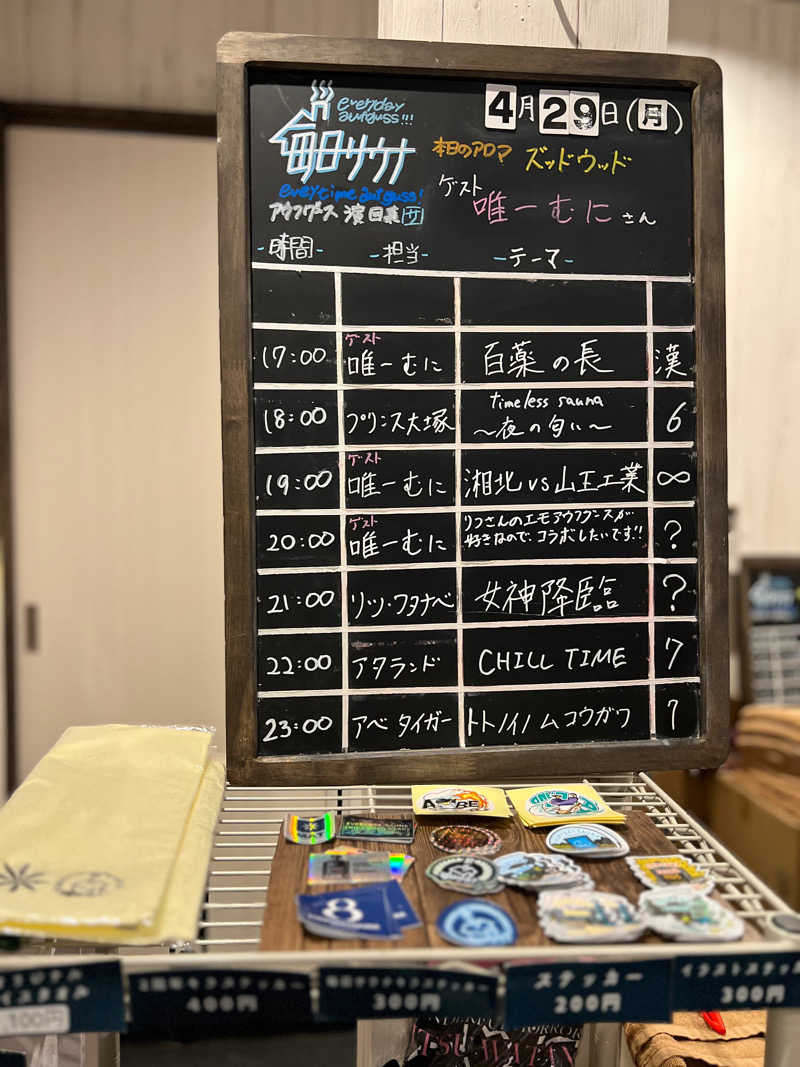 everyday
aufguss!!!
毎日サウナ
everytime aufguss!
アウフグース
4月29日(月)
本日のアロマ ズッドウッド
ゲスト
唯一むに さん
-時間- -担当- -テーマ-
17:00 ゲスト 唯一むに 百薬の長 漢
18:00 プリンス大塚 timeless sauna ～夜の匂い～ 6
19:00 ゲスト 唯一むに 湘北 vs 山王工業 ∞
20:00 ゲスト 唯一むに
好きなので、コラボしたいです!! ?
21:00 リッツ・ワタナベ 女神降臨 ?
22:00 アタランド CHILL TIME 7
23:00 アベ タイガー トトノイノムコウガワ 7
8
400円
300円
ステッカー
200円
イラストステッカー
300円
100円